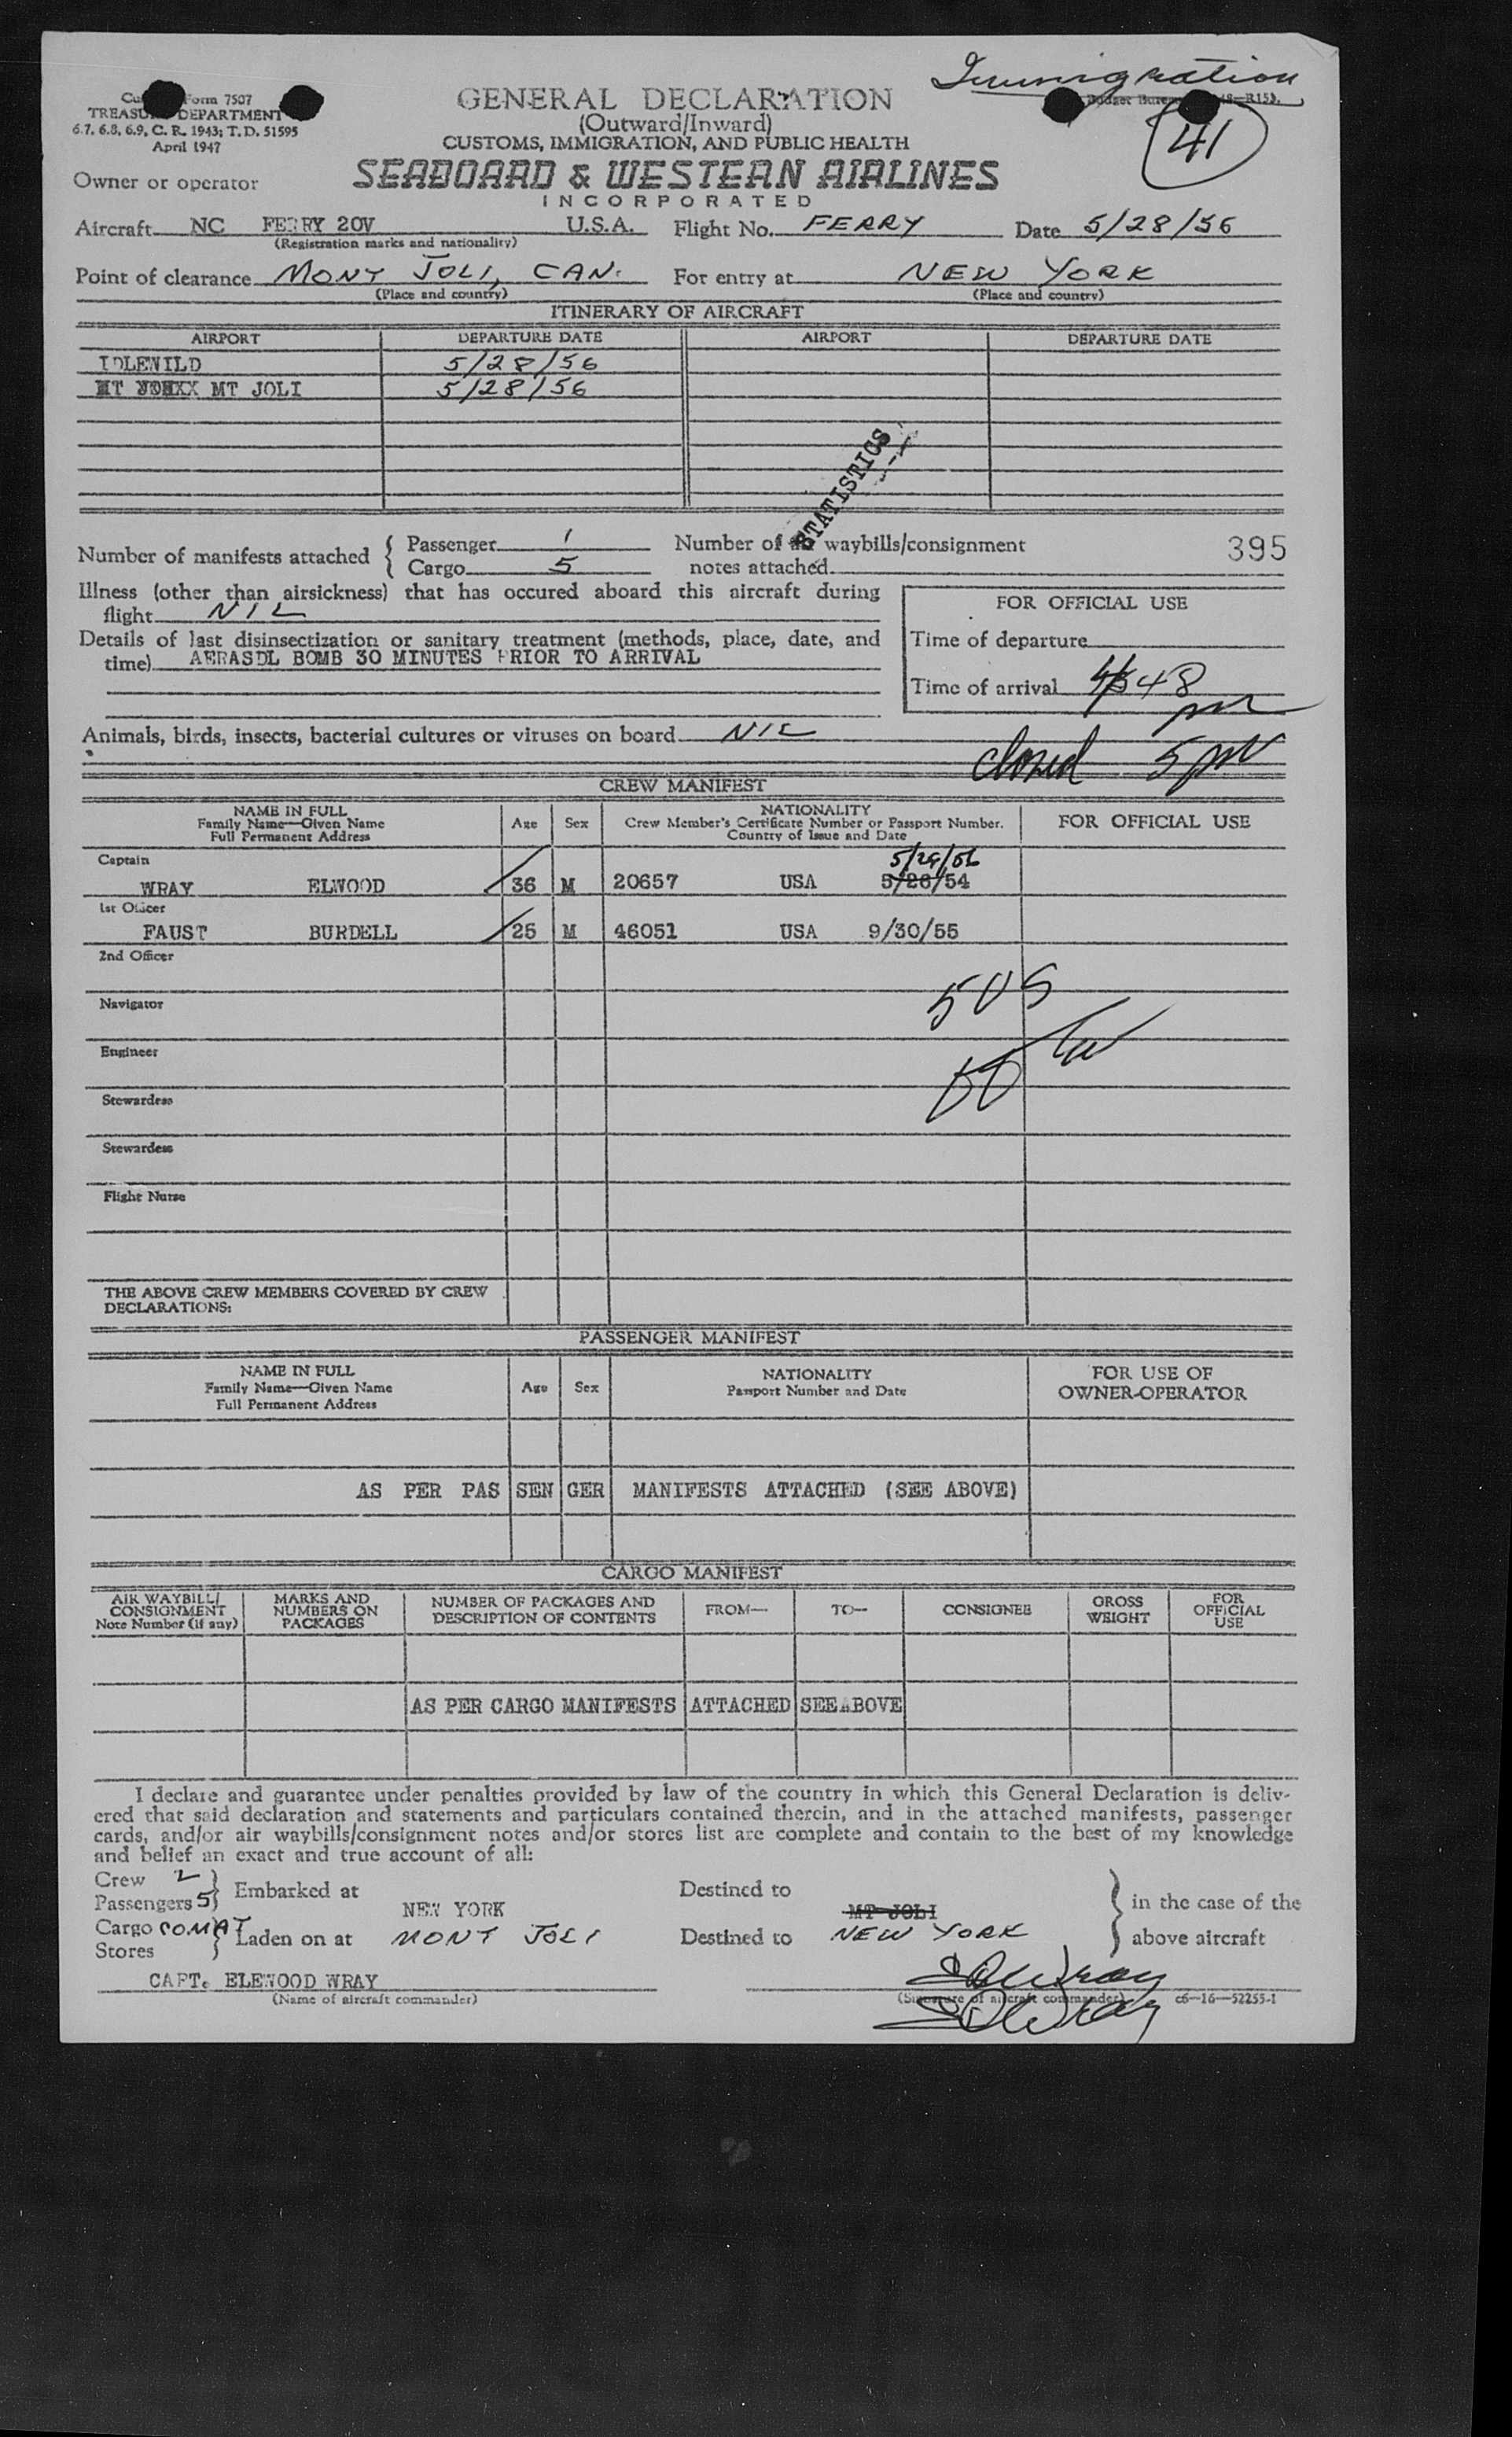 Immigration
Form 7507
TREASU DEPARTMENT
6.7, 6.8, 6.9, C. R. 1943; T. D. 51595
April 1947
41
GENERAL DECLARATION
(Outward/Inward)
CUSTOMS, IMMIGRATION, AND PUBLIC HEALTH
Owner or operator SEABOARD & WESTERN AIRLINES
INCORPORATED
Aircraft NC FERRY 20V U.S.A. Flight No. FERRY Date 5/28/56
(Registration marks and nationality)
Point of clearance MONT JOLI, CAN. For entry at NEW YORK
(Place and country) (Place and country)
ITINERARY OF AIRCRAFT
AIRPORT DEPARTURE DATE AIRPORT DEPARTURE DATE
IDLEWILD 5/28/56
MT JOLI 5/28/56
STATISTICS
Number of manifests attached { Passenger 1 Number of air waybills/consignment 395
Cargo 5 notes attached
Illness (other than airsickness) that has occured aboard this aircraft during
flight NIL
FOR OFFICIAL USE
Details of last disinsectization or sanitary treatment (methods, place, date, and
time) AERASOL BOMB 30 MINUTES PRIOR TO ARRIVAL
Time of departure
Time of arrival 448 pm
Animals, birds, insects, bacterial cultures or viruses on board NIL
closed 5 pm
CREW MANIFEST
NAME IN FULL
Family Name—Given Name
Full Permanent Address
Age Sex
NATIONALITY
Crew Member's Certificate Number or Passport Number.
Country of Issue and Date
FOR OFFICIAL USE
Captain 5/29/56
WRAY ELWOOD 36 M 20657 USA 5/28/54
1st Officer
FAUST BURDELL 25 M 46051 USA 9/30/55
2nd Officer
505
Navigator
Engineer
Stewardess
Stewardess
Flight Nurse
THE ABOVE CREW MEMBERS COVERED BY CREW
DECLARATIONS:
PASSENGER MANIFEST
NAME IN FULL
Family Name—Given Name
Full Permanent Address
Age Sex
NATIONALITY
Passport Number and Date
FOR USE OF
OWNER-OPERATOR
AS PER PAS SEN GER MANIFESTS ATTACHED (SEE ABOVE)
CARGO MANIFEST
AIR WAYBILL/
CONSIGNMENT
Note Number (if any)
MARKS AND
NUMBERS ON
PACKAGES
NUMBER OF PACKAGES AND
DESCRIPTION OF CONTENTS
FROM— TO— CONSIGNEE
GROSS
WEIGHT
FOR
OFFICIAL
USE
AS PER CARGO MANIFESTS ATTACHED SEE ABOVE
I declare and guarantee under penalties provided by law of the country in which this General Declaration is deliv-
ered that said declaration and statements and particulars contained therein, and in the attached manifests, passenger
cards, and/or air waybills/consignment notes and/or stores list are complete and contain to the best of my knowledge
and belief an exact and true account of all:
Crew 2
Passengers 5 Embarked at NEW YORK Destined to MT JOLI in the case of the
Cargo COMAT
Stores Laden on at MONT JOLI Destined to NEW YORK above aircraft
CAPT. ELEWOOD WRAY
(Name of aircraft commander) (Signature of aircraft commander) c6—16—52255-1